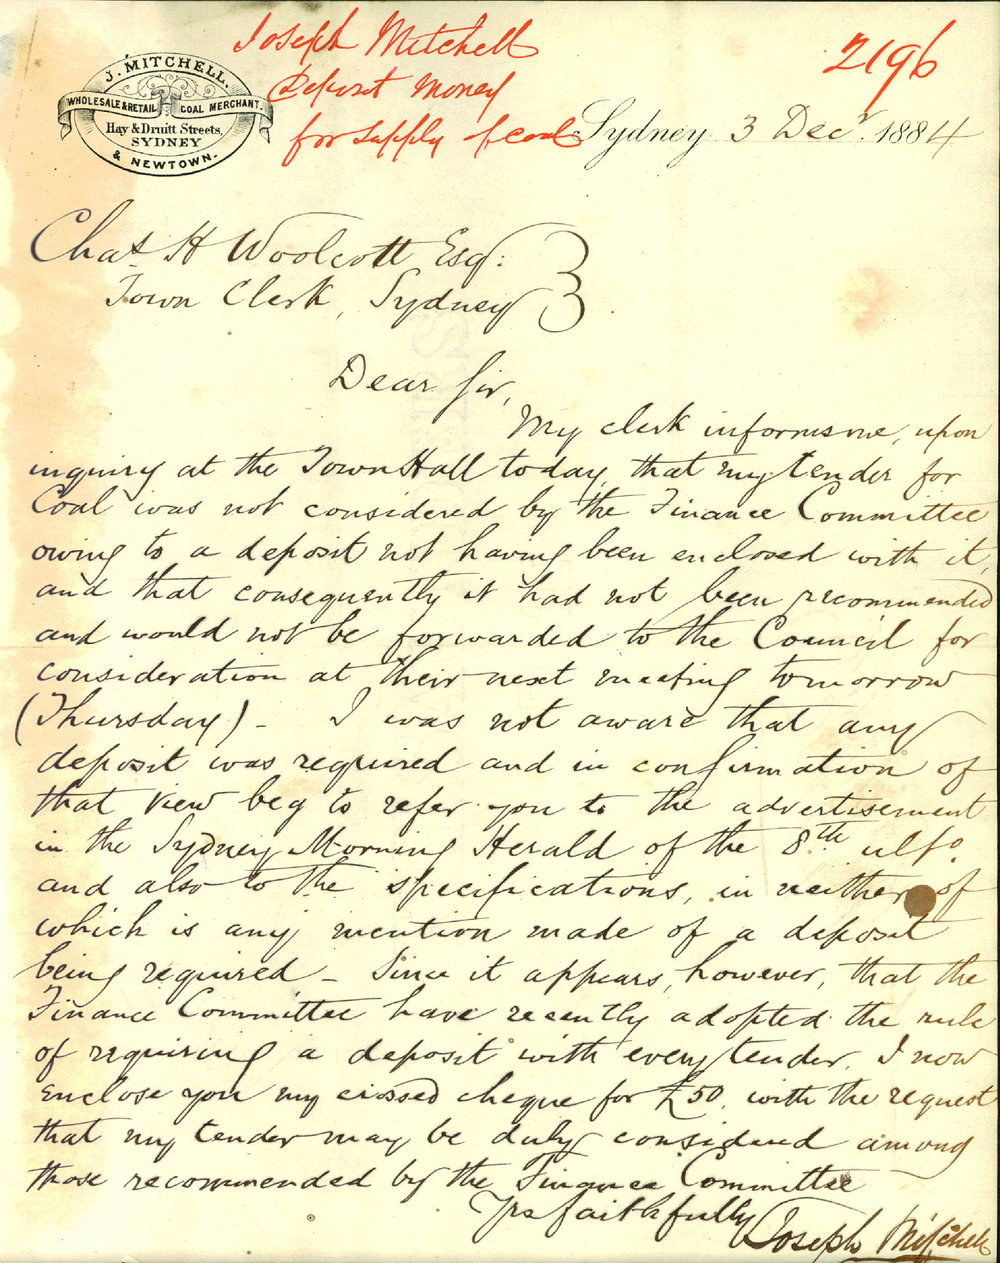 Joseph Mitchell
Deposit Money
for supply of coal
2196
J. MITCHELL.
WHOLESALE & RETAIL COAL MERCHANT.
Hay & Druitt Streets,
SYDNEY
& NEWTOWN.
Sydney 3 Decr. 1884
Chas. H Woolcott Esq:
Town Clerk, Sydney
Dear Sir,
My clerk informs me, upon
inquiry at the Town Hall today, that my tender for
Coal was not considered by the Finance Committee
owing to a deposit not having been enclosed with it,
and that consequently it had not been recommended
and would not be forwarded to the Council for
consideration at their next meeting tomorrow
(Thursday) - I was not aware that any
deposit was required and in confirmation of
that view beg to refer you to the advertisement
in the Sydney Morning Herald of the 8th ulto.
and also to the specifications, in neither of
which is any mention made of a deposit
being required - Since it appears, however, that the
Finance Committee have recently adopted the rule
of requiring a deposit with every tender, I now
enclose you my crossed cheque for £50, with the request
that my tender may be duly considered among
those recommended by the Finance Committee
Yrs faithfully
Joseph Mitchell